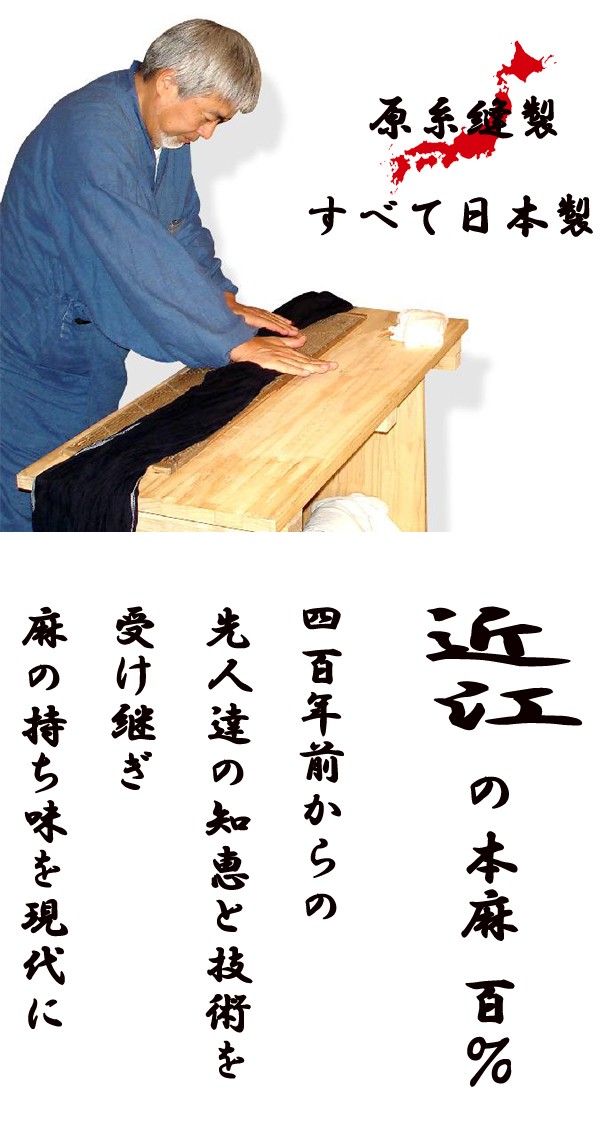 原糸縫製
すべて日本製
近江の本麻 百%
四百年前からの
先人達の知恵と技術を
受け継ぎ
麻の持ち味を現代に